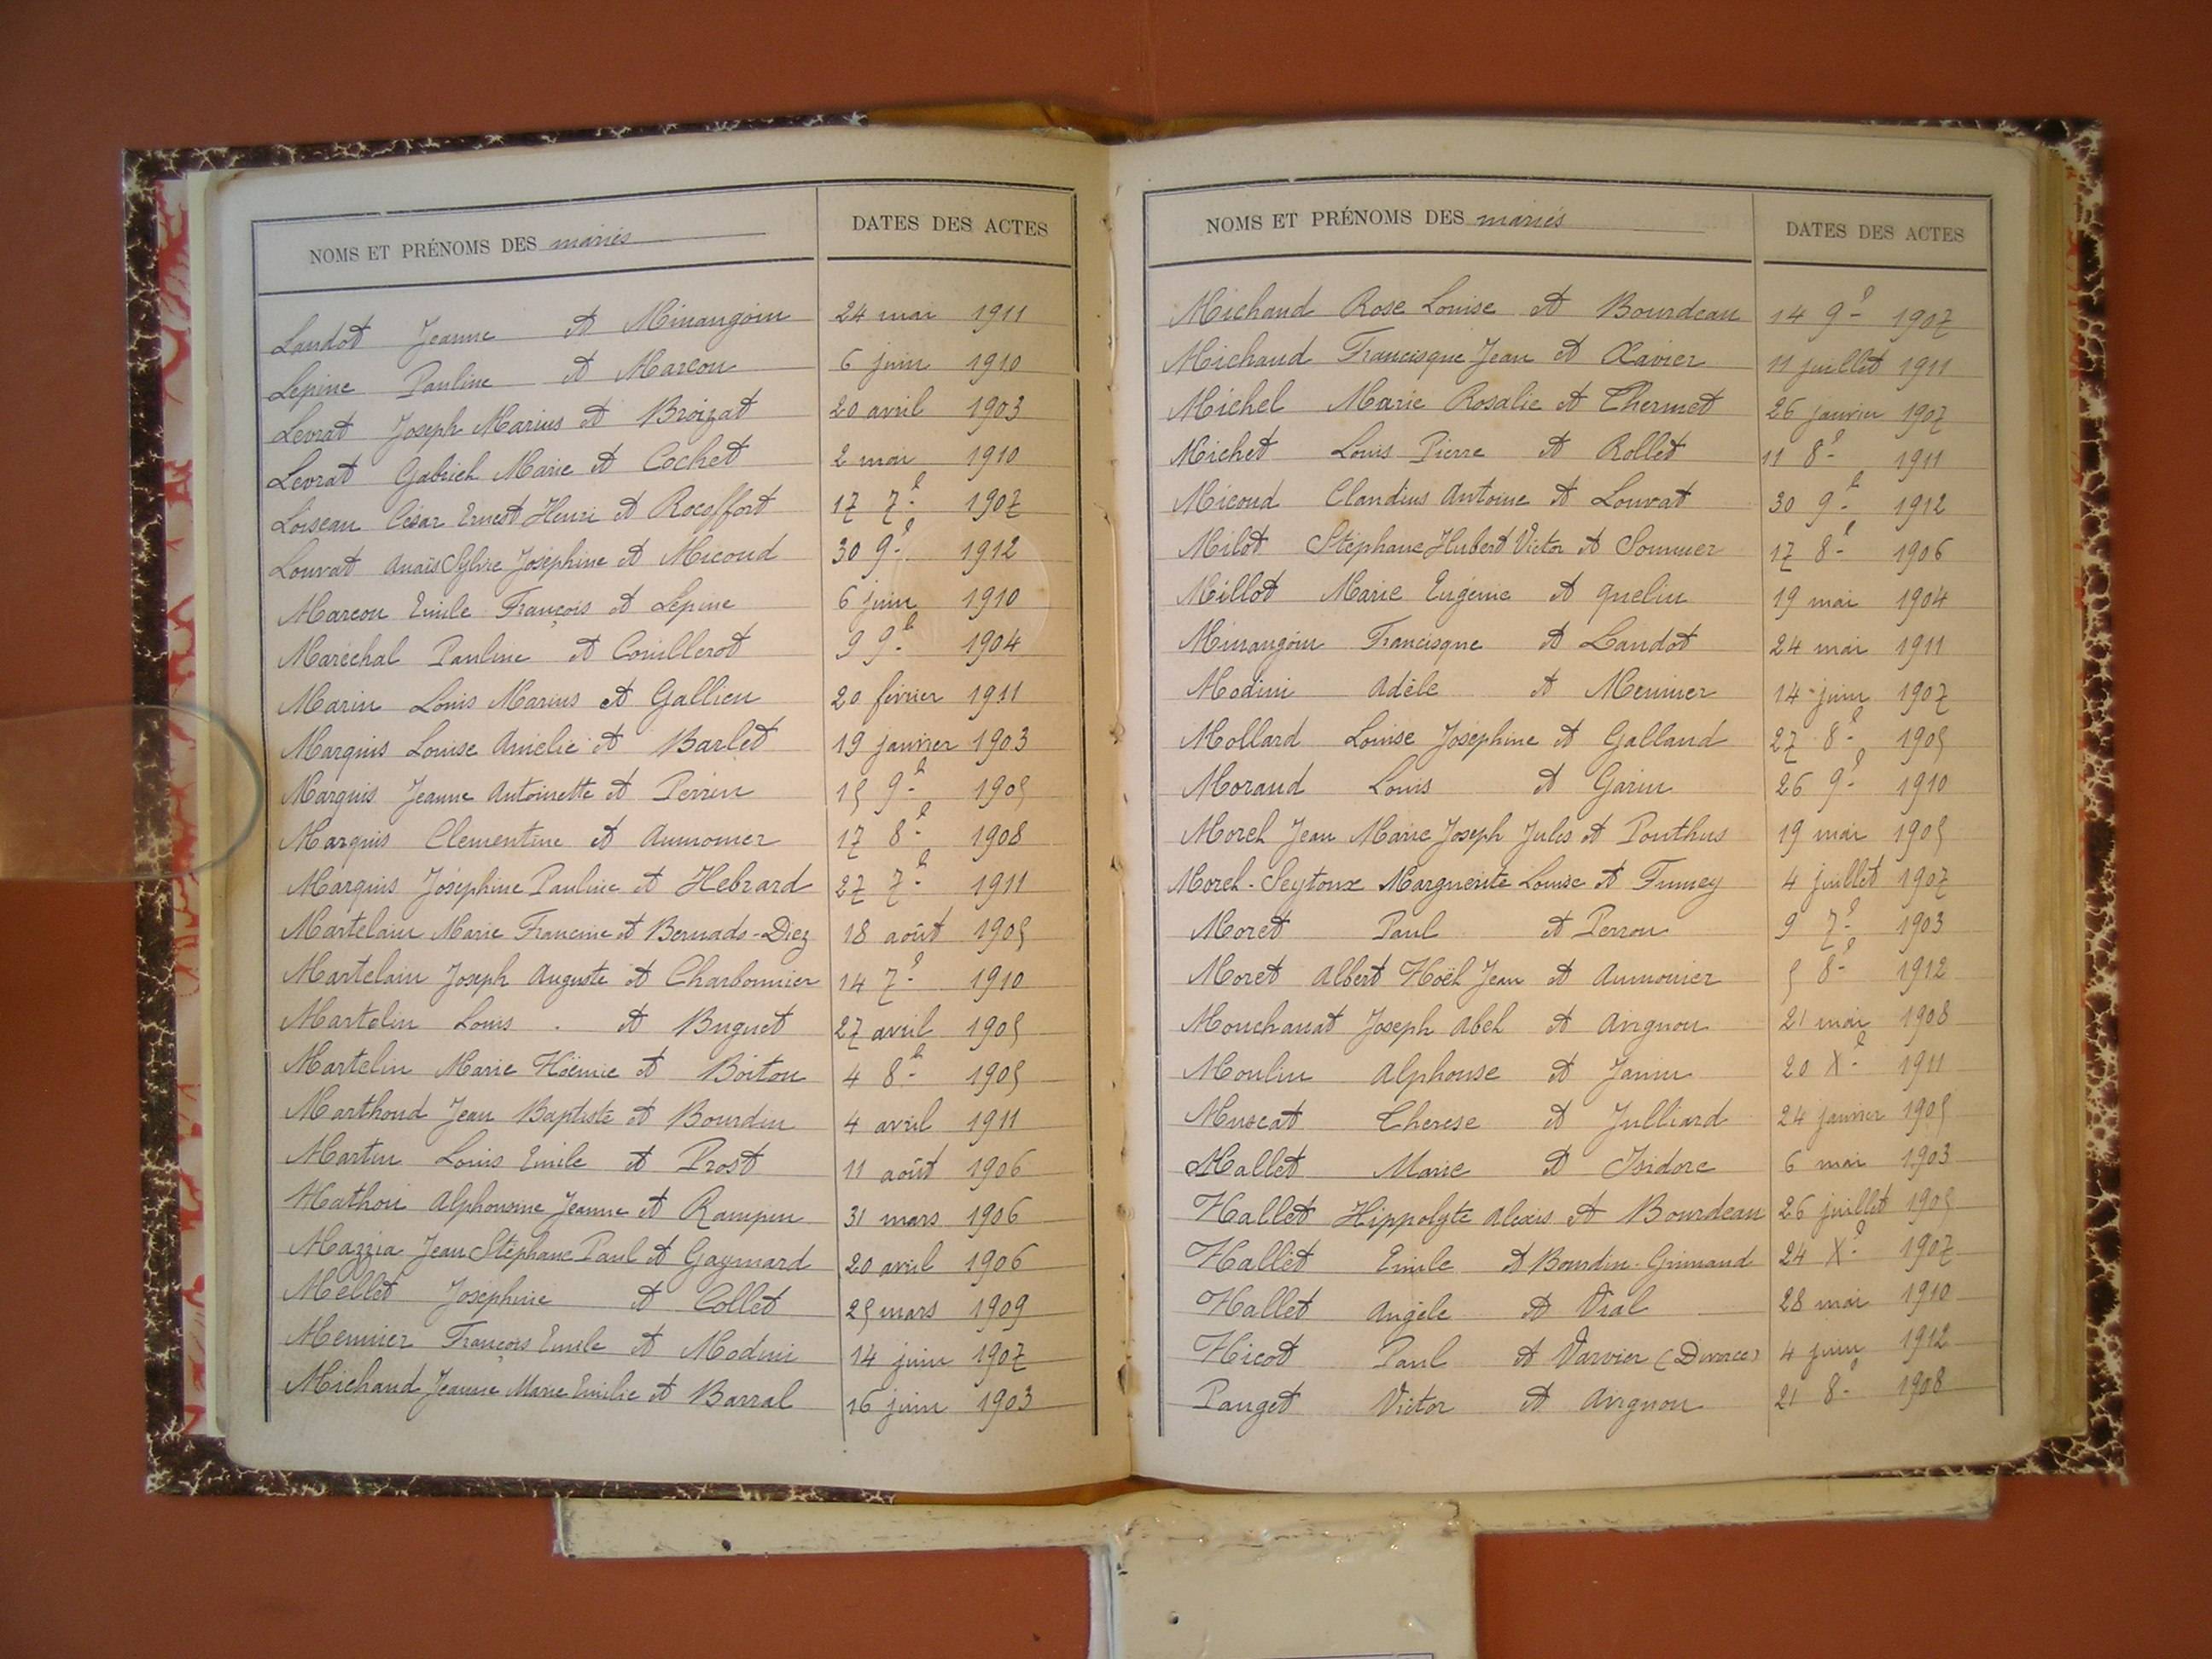 NOMS ET PRÉNOMS DES mariés DATES DES ACTES
Landot Jeanne et Minangoin 24 mai 1911
Lepine Pauline et Marcou 6 juin 1910
Levrat Joseph Marius et Broizat 20 avril 1903
Levrat Gabriel Marie et Cochet 2 mai 1910
Loiseau César Ernest Henri et Rocoffort 17 7bre 1907
Louvat Anaïs Sylvie Joséphine et Micoud 30 9bre 1912
Marcou Emile François et Lépine 6 juin 1910
Maréchal Pauline et Couillerot 9 9bre 1904
Marin Louis Marius et Gallien 20 février 1911
Marquis Louise Amélie et Barlet 19 janvier 1903
Marquis Jeanne Antoinette et Perrin 15 9bre 1905
Marquis Clementine et Aumonier 17 8bre 1908
Marquis Joséphine Pauline et Hebrard 27 7bre 1911
Martelain Marie Francine et Bernado-Diez 18 août 1905
Martelain Joseph Auguste et Charbonnier 14 7bre 1910
Martelin Louis et Buguet 27 avril 1905
Martelin Marie Noëmie et Boiton 4 8bre 1905
Marthoud Jean Baptiste et Bourdin 4 avril 1911
Martin Louis Emile et Prost 11 août 1906
Mathon Alphonsine Jeanne et Rampin 31 mars 1906
Mazzia Jean Stéphane Paul et Gaymard 20 avril 1906
Mellet Joséphine et Collet 25 mars 1909
Meunier François Emile et Modini 14 juin 1907
Michaud Jeanne Marie Emilie et Barral 16 juin 1903
NOMS ET PRÉNOMS DES mariés DATES DES ACTES
Michaud Rose Louise et Bourdeau 14 9bre 1907
Michaud Francisque Jean et Xavier 11 juillet 1911
Michel Marie Rosalie et Thermet 26 janvier 1907
Michet Louis Pierre et Rollet 11 8bre 1911
Micoud Claudius Antoine et Louvat 30 9bre 1912
Milot Stéphane Hubert Victor et Sommer 17 8bre 1906
Millot Marie Eugénie et Quelin 19 mai 1904
Minangoin Francisque et Landot 24 mai 1911
Modini Adèle et Meunier 14 juin 1907
Mollard Louise Joséphine et Galland 27 8bre 1905
Morand Louis et Garin 26 9bre 1910
Morel Jean Marie Joseph Jules et Ponthus 19 mai 1905
Morel-Seytoux Marguerite Louise et Fumey 4 juillet 1907
Moret Paul et Perron 9 7bre 1903
Moret Albert Noël Jean et Aumonier 5 8bre 1912
Mouchanat Joseph Abel et Avignon 21 mai 1908
Moulin Alphonse et Janin 20 Xbre 1911
Muscat Therese et Julliard 24 janvier 1905
Nallet Marie et Isidore 6 mai 1903
Nallet Hippolyte Alexis et Bourdeau 26 juillet 1905
Nallet Emile et Bourdin-Grimaud 24 Xbre 1907
Nallet Angèle et Vial 28 mai 1910
Nicot Paul et Varvier (Divorce) 4 juin 1912
Panget Victor et Avignon 21 8bre 1908